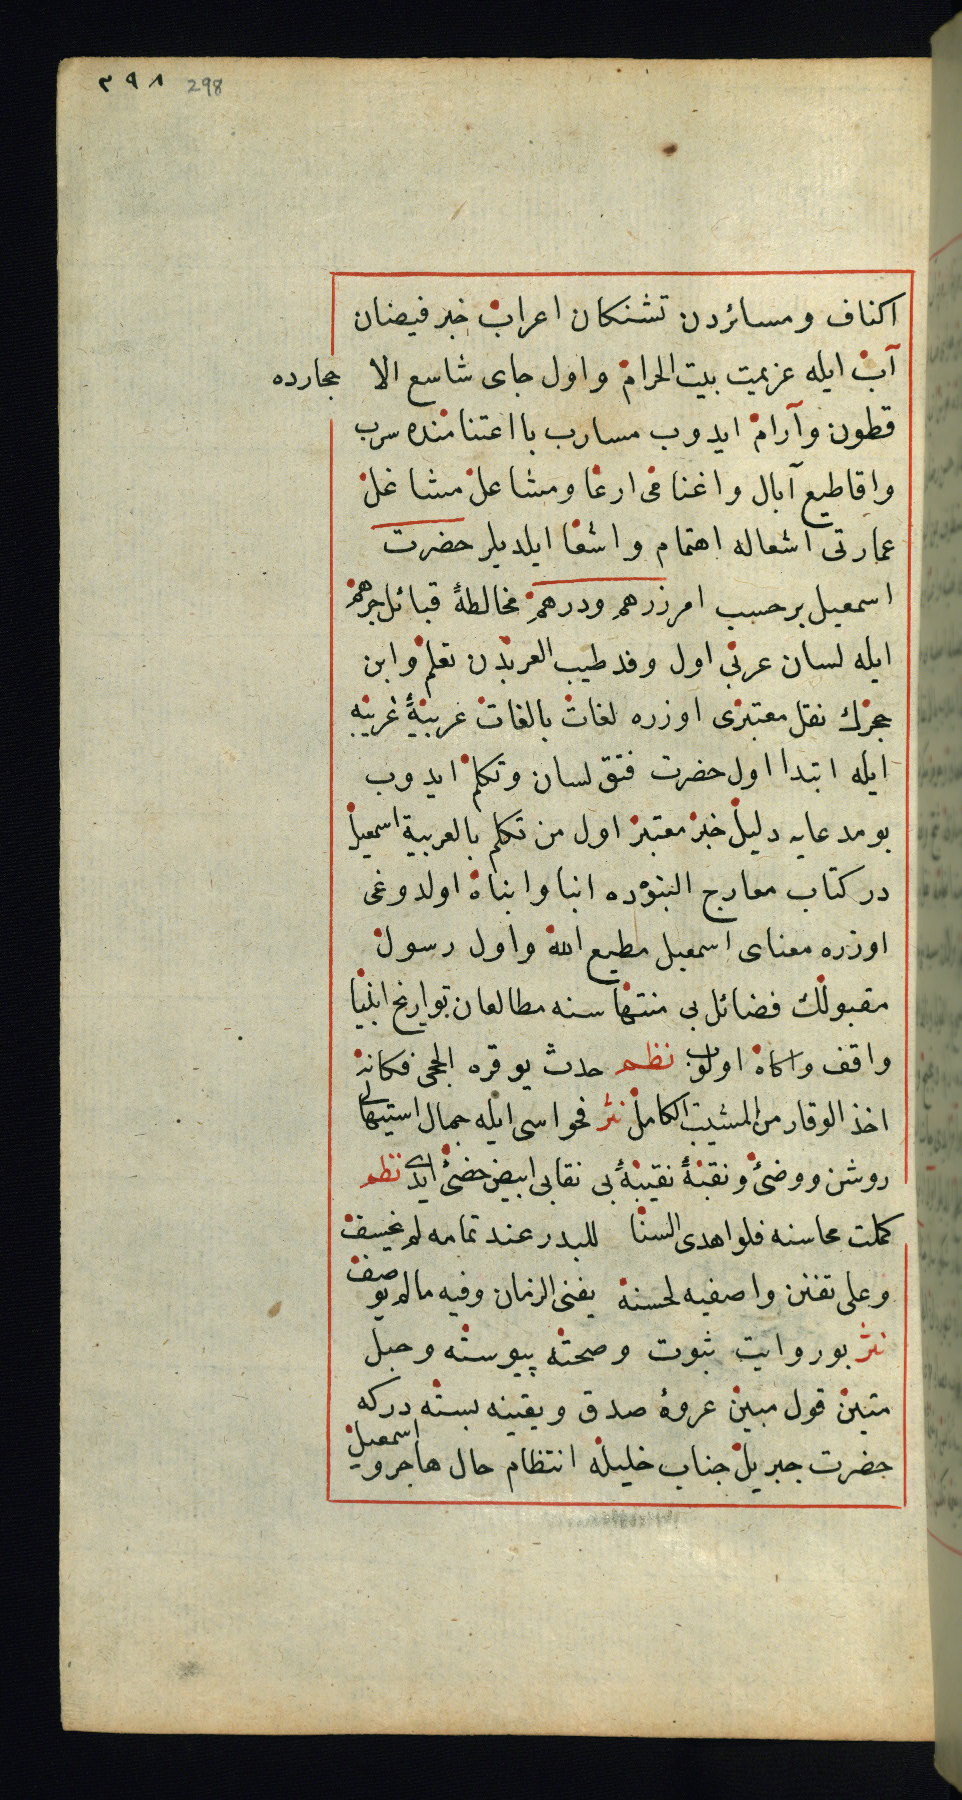 ٣٩٨ 298
اكناف ومسائردن تشنكان اعراب خبر فيضان
آب ايله عزيمت بيت الحرام واول جاى شاسع الا حجارده
قطون وآرام ايدوب مسارب با اعتنا منده سرب
واقاطيع آبال واغنامى ارعا ومشاعل مشاغل
عمارتى اشعاله اهتمام واشفا ايلديلر حضرت
اسمعيل برحسب امرزرهم ودرهم مخالطهٔ قبائل جرهم
ايله لسان عربى اول وفد طيب العربدن تعلم وابن
حجرك نقل معتبرى اوزره لغات بالغات عربيهٔ غريبه
ايله ابتدا اول حضرت فتق لسان وتكلم ايدوب
بو مدعايه دليل خبر معتبر اول من تكلم بالعربية اسمعيل
در كتاب معارج النبوّه ده انبا وابناه اولدوغى
اوزره معناى اسمعيل مطيع الله واول رسول
مقبولك فضائل بى منتهاسنه مطالعان تواريخ انبيا
واقف واكاه اولوب نظم حدث يوقره الحجى فكانه
اخذ الوقار من المشيب الكامل نثر فحواسى ايله جمال استيهالى
روشن ووضئ ونقبهٔ نقيبهٔ بى نقابى ابيض حضئ ايدى نظم
كملت محاسنه فلو اهدى السنا للبدر عند تمامه لم يخسف
وعلى تفنن واصفيه لحسنه يفنى الزمان وفيه مالم يوصف
نثر بو روايت ثبوت وصحته پيوسته وحبل
متين قول مبين عروهٔ صدق ويقينه بسته دركه
حضرت جبريل جناب خليله انتظام حال هاجر واسمعيل